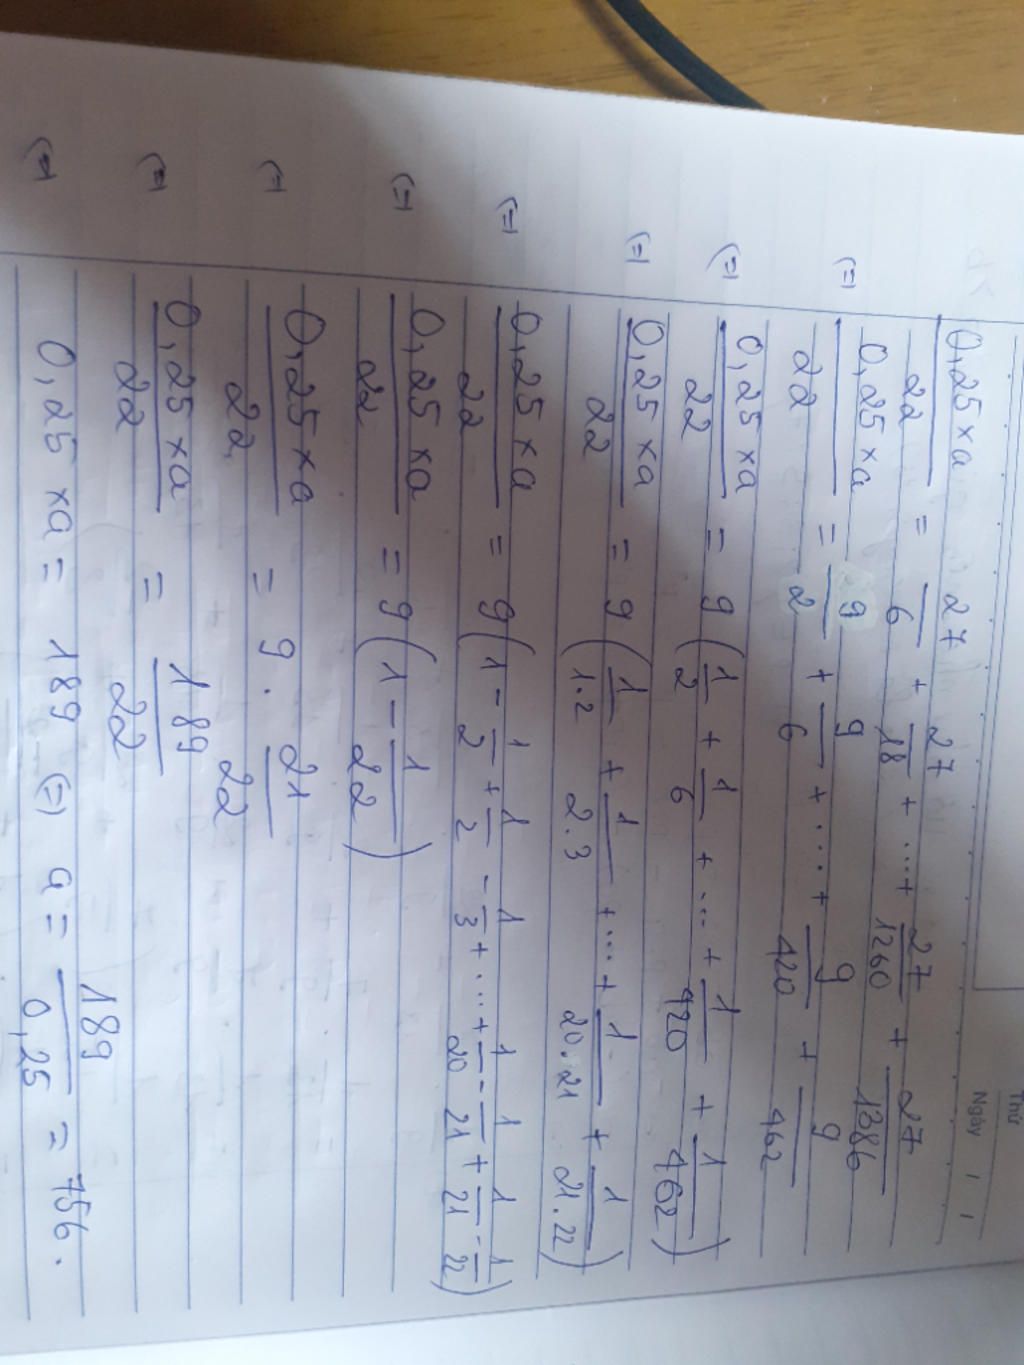 Thứ
Ngày / /
0,25 × a / 22 = 27/6 + 27/18 + ... + 27/1260 + 27/1386
(=) 0,25 × a / 22 = 9/2 + 9/6 + ... + 9/420 + 9/462
(=) 0,25 × a / 22 = 9 (1/2 + 1/6 + ... + 1/420 + 1/462)
(=) 0,25 × a / 22 = 9 (1/1.2 + 1/2.3 + ... + 1/20.21 + 1/21.22)
(=) 0,25 × a / 22 = 9 (1 - 1/2 + 1/2 - 1/3 + ... + 1/20 - 1/21 + 1/21 - 1/22)
(=) 0,25 × a / 22 = 9 (1 - 1/22)
(=) 0,25 × a / 22 = 9 . 21/22
(=) 0,25 × a / 22 = 189/22
(=) 0,25 × a = 189 (=) a = 189/0,25 = 756.